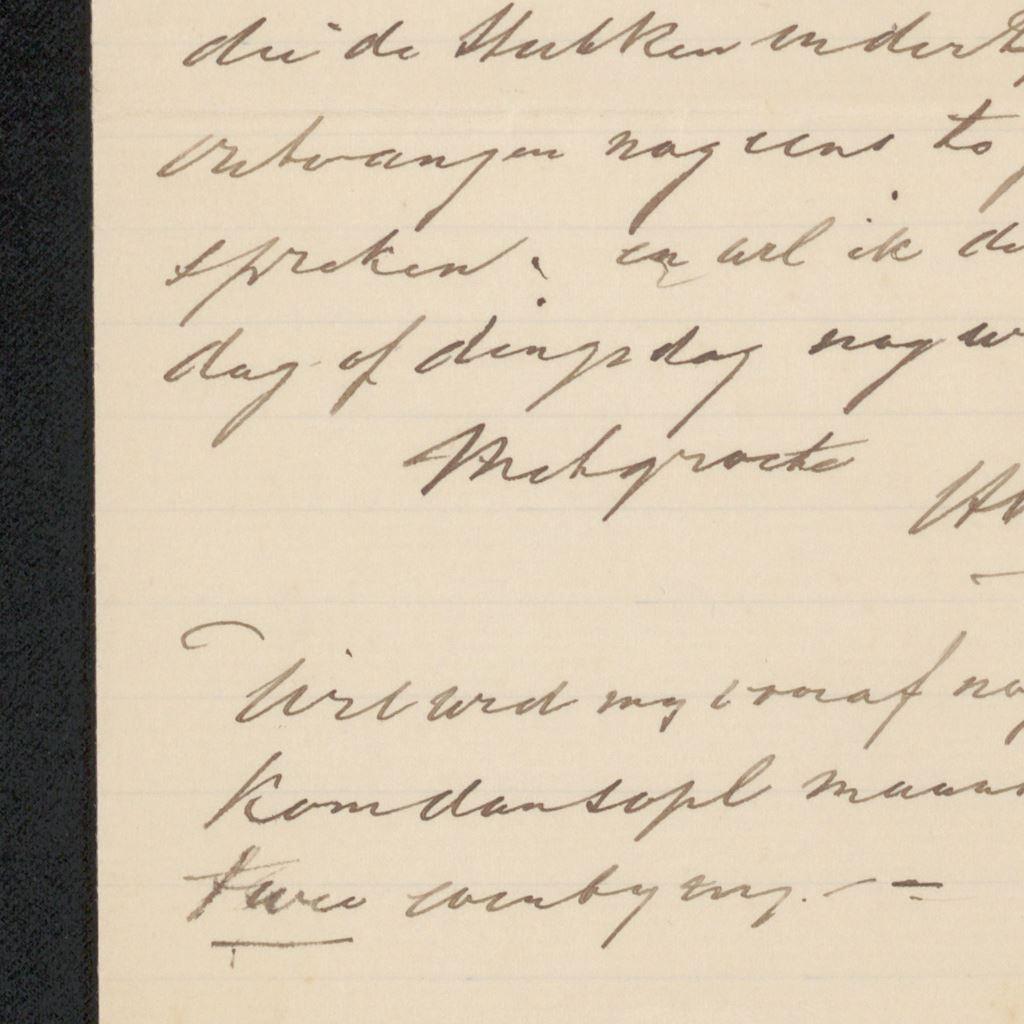 die de stukken inder
ontvangen nog eens to
spreken: en wel ik de
dag of dingsdag nog
Met groete
Wil wed my vooraf no
Kom dan sopl maan
twee even by my. —